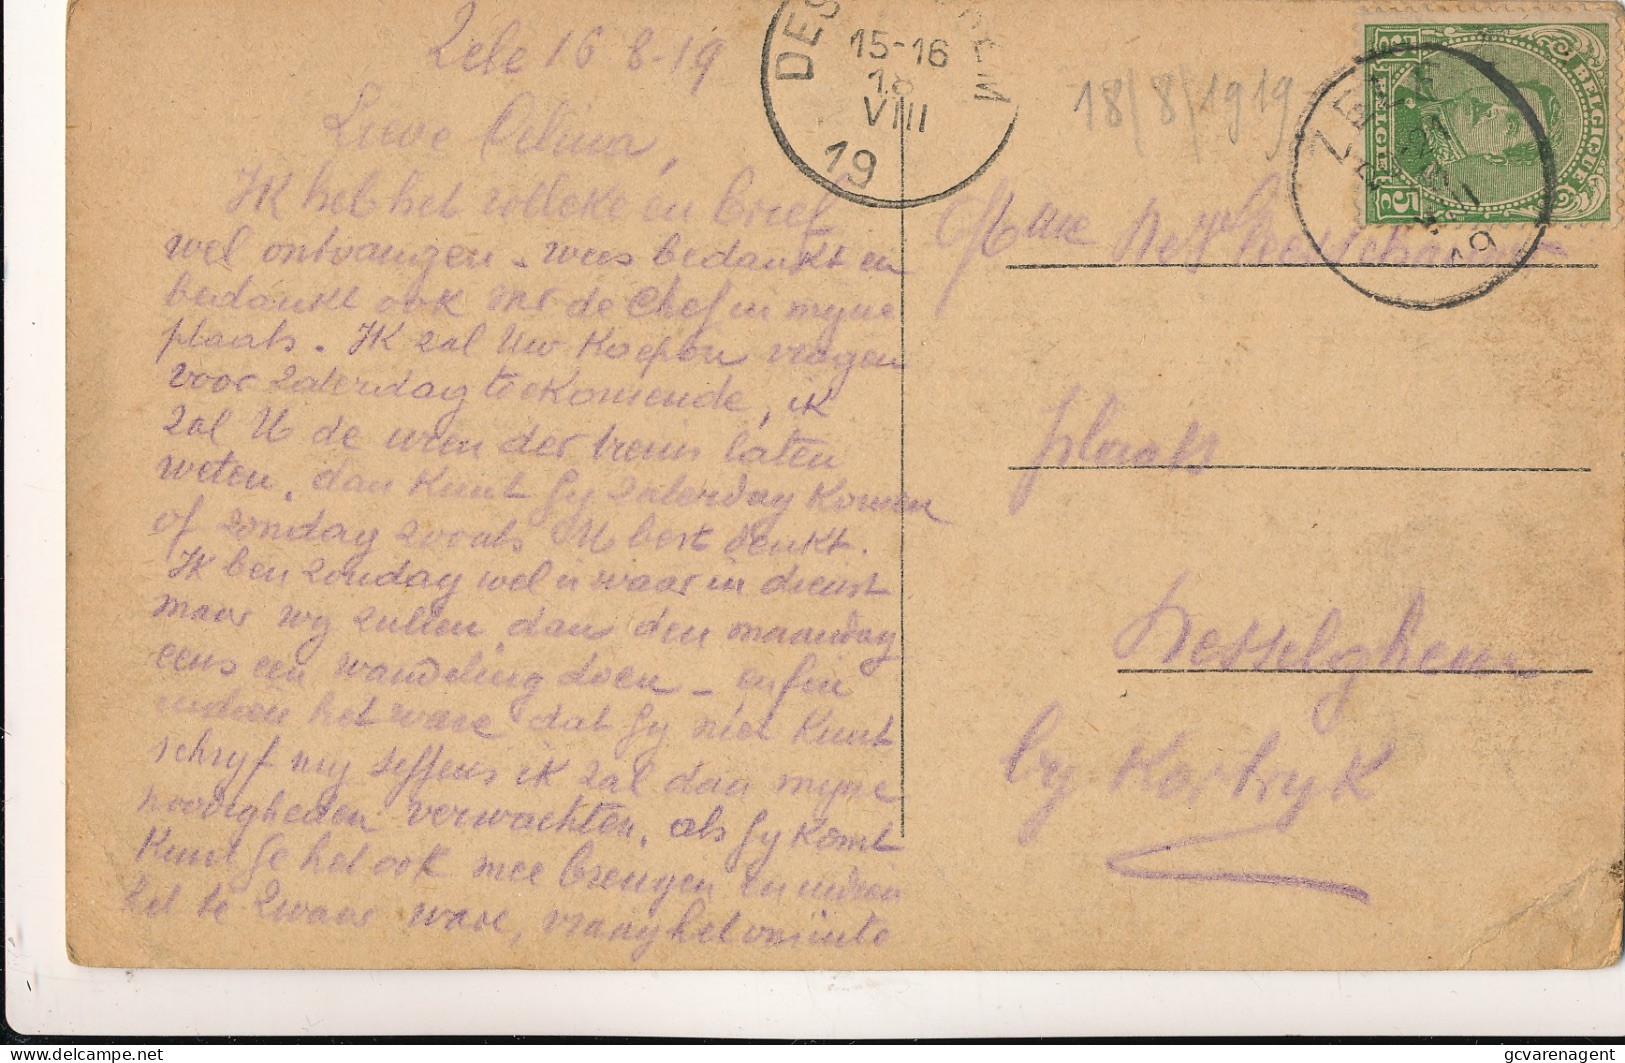 Zele 16-8-19
Lieve Celina,
Ik heb het kolleke en brief
wel ontvangen - wees bedankt en
bedankt ook de Chef in myne
plaats. Ik zal Uw Koepon vragen
voor Zaterdag toekomende, ik
zal U de uren der treins laten
weten, dan kunt Gy Zaterdag komen
of Zondag zooals U best denkt.
Ik ben Zondag wel is waar in dienst
maar wy zullen dan den maandag
eens een wandeling doen - enfin
indien het ware dat Gy niet kunt
schryf my seffens ik zal dan myne
noodigheden verwachten, als Gy komt
kunt Ge het ook mee brengen en indien
het te Zwaar ware, vraag het
DES EM
15-16
18
VIII
19
18/8/1919
BELGIQUE
BELGIË
5c
5c
ZELE
VIII
19
Mme
plaats
Desselghem
by Kortryk
gcvarenagent
delcampe.net